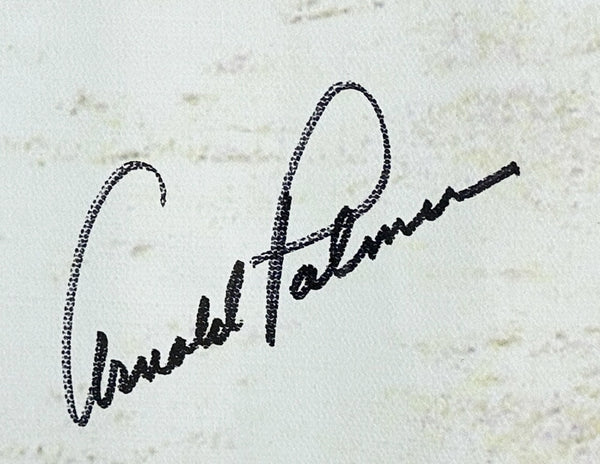 Arnold Palmer